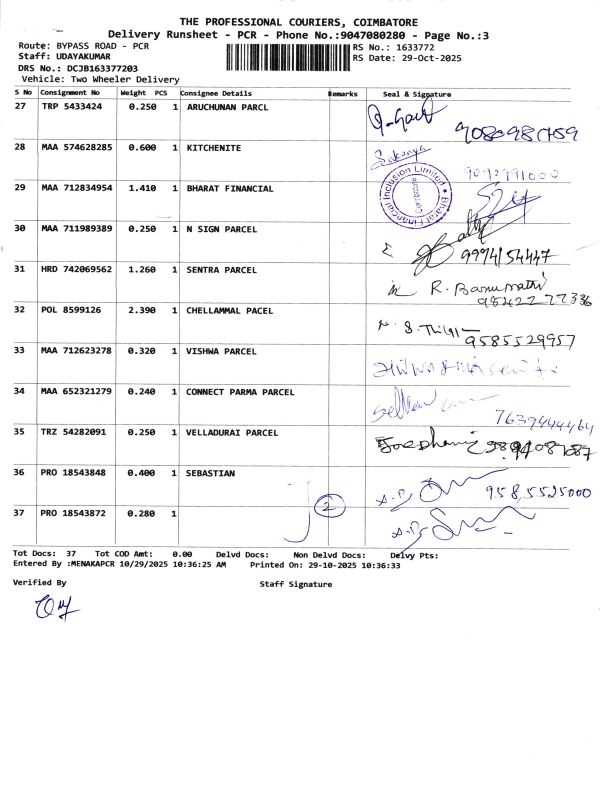 THE PROFESSIONAL COURIERS, COIMBATORE
Delivery Runsheet - PCR - Phone No.:9047080280 - Page No.:3
Route: BYPASS ROAD - PCR
RS No.: 1633772
Staff: UDAYAKUMAR
RS Date: 29-Oct-2025
DRS No.: DCJB163377203
Vehicle: Two Wheeler Delivery
S No Consignment No Weight PCS Consignee Details Remarks Seal & Signature
27 TRP 5433424 0.250 1 ARUCHUNAN PARCL
28 MAA 574628285 0.600 1 KITCHENITE
29 MAA 712834954 1.410 1 BHARAT FINANCIAL
Bharat Financial Inclusion Limited
30 MAA 711989389 0.250 1 N SIGN PARCEL
9994154447
31 HRD 742069562 1.260 1 SENTRA PARCEL
R. Banumathi
32 POL 8599126 2.390 1 CHELLAMMAL PACEL
9585529957
33 MAA 712623278 0.320 1 VISHWA PARCEL
34 MAA 652321279 0.240 1 CONNECT PARMA PARCEL
7639444464
35 TRZ 54282091 0.250 1 VELLADURAI PARCEL
36 PRO 18543848 0.400 1 SEBASTIAN
9585525000
2
37 PRO 18543872 0.280 1
Tot Docs: 37 Tot COD Amt: 0.00 Delvd Docs: Non Delvd Docs: Delvy Pts:
Entered By :MENAKAPCR 10/29/2025 10:36:25 AM Printed On: 29-10-2025 10:36:33
Verified By Staff Signature